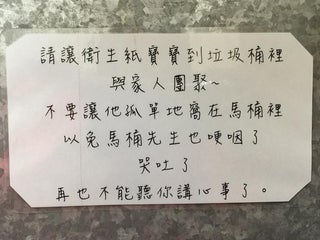 請讓衛生紙寶寶到垃圾桶裡
與家人團聚~
不要讓他孤單地窩在馬桶裡
以免馬桶先生也哽咽了
哭吐了
再也不能聽你講心事了。